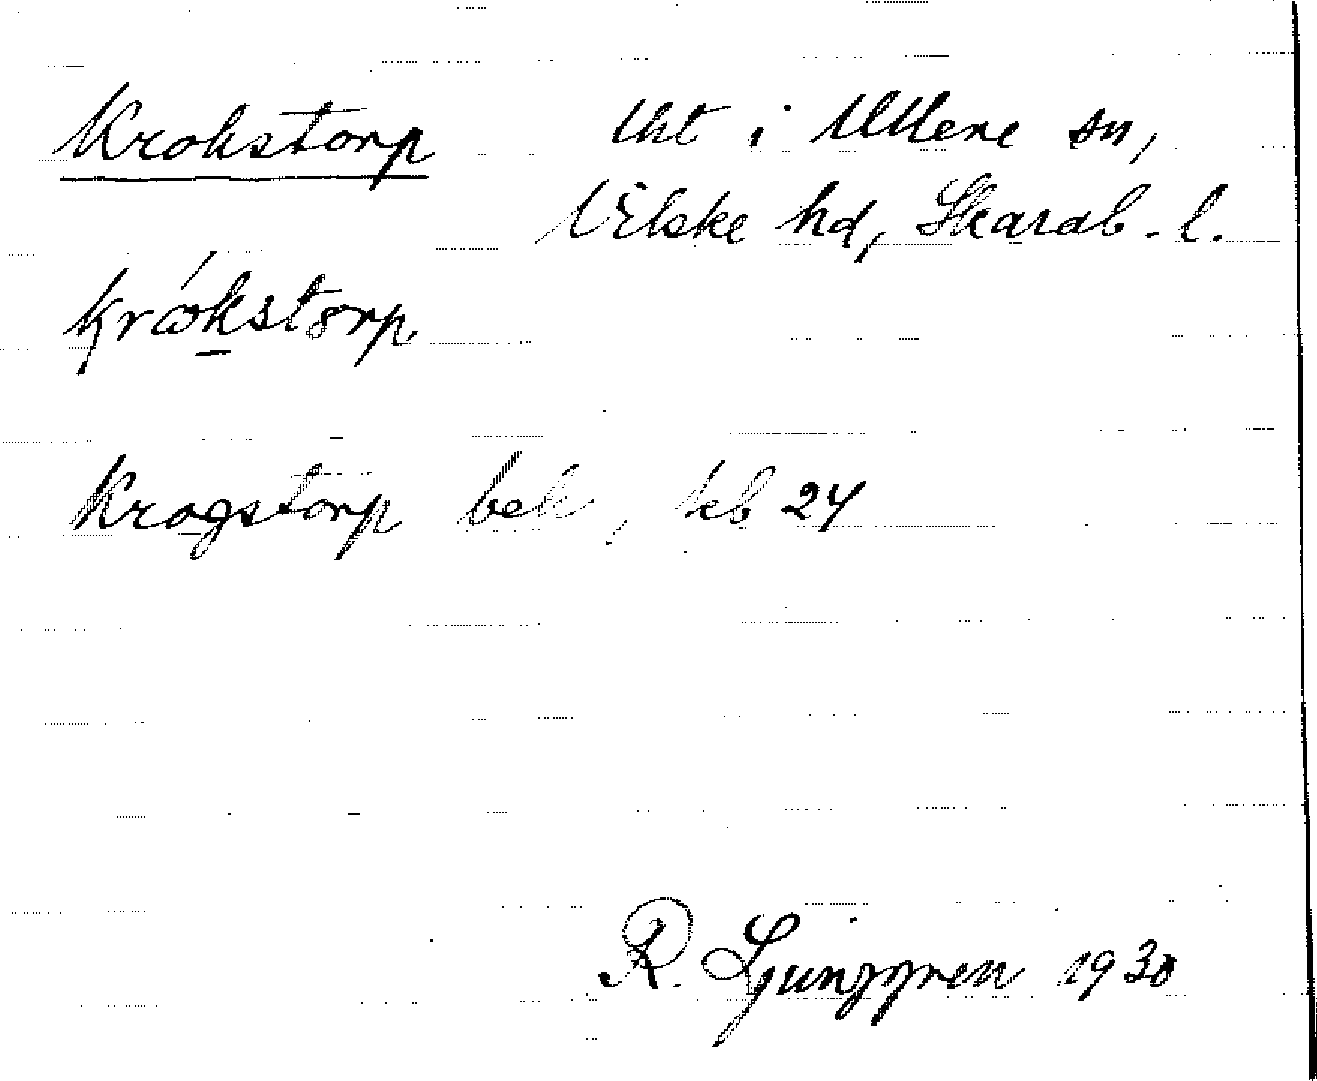 Krokstorp Uht i Ullene sn,
Vilske hd, Skarab. l.
krókstorp.
Krogstorp bek, leb 24
R. Ljunggren 1930